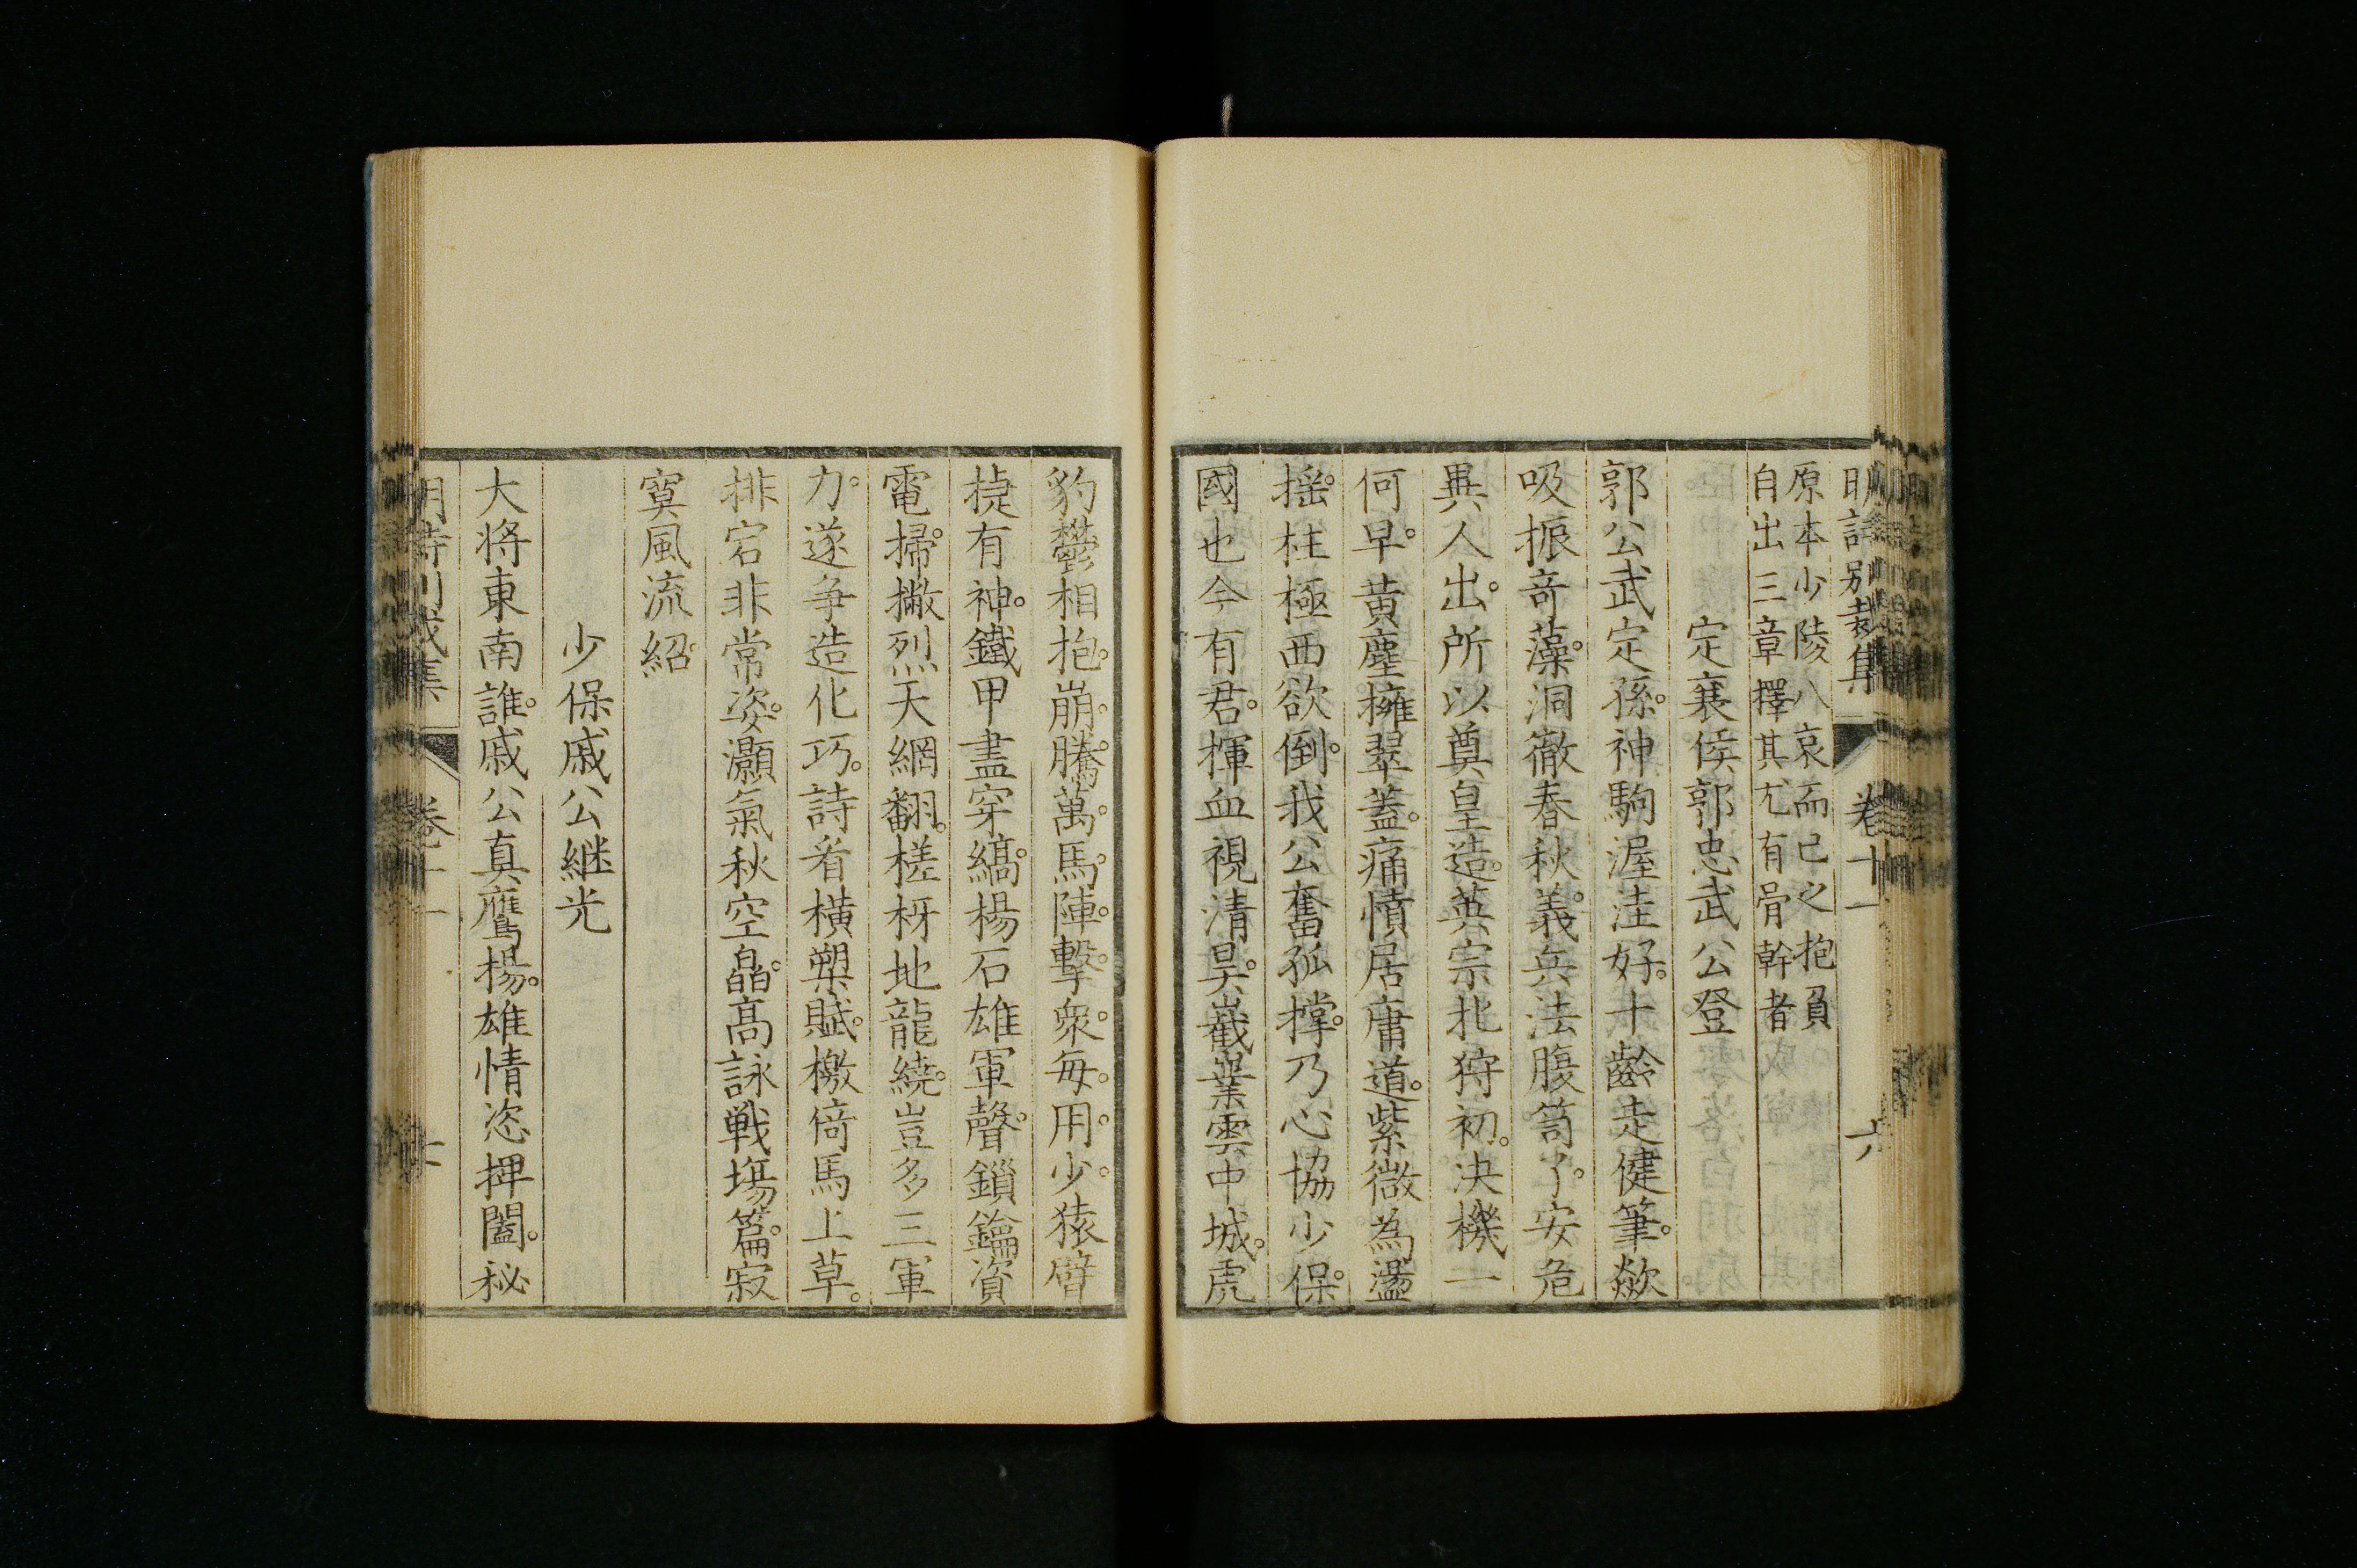 明詩別裁集 卷十一 六
原本少陵八哀而已之抱負
自出三章擇其尤有骨幹者
定襄侯郭忠武公登
郭公武定孫神駒渥洼好十齡走健筆歘
吸振奇藻洞徹春秋義兵法腹笥了安危
異人出所以奠皇造英宗北狩初决機一
何早黃塵擁翠蓋痛憤居庸道紫微為盪
搖柱極西欲倒我公奮孤撑乃心協少保
國也今有君揮血視清昊嶻嶪雲中城虎
豹鬱相抱崩騰萬馬陣擊衆每用少猿臂
㨗有神鐵甲盡穿縞楊石雄軍聲鎖鑰資
電掃撇烈天網翻槎枒地龍繞豈多三軍
力遂爭造化巧詩看橫槊賦檄倚馬上草
排宕非常姿灝氣秋空皛高詠戰塲篇寂
寞風流紹
少保戚公継光
大將東南誰戚公真鷹楊雄情恣捭闔秘
明詩別裁集 卷十一